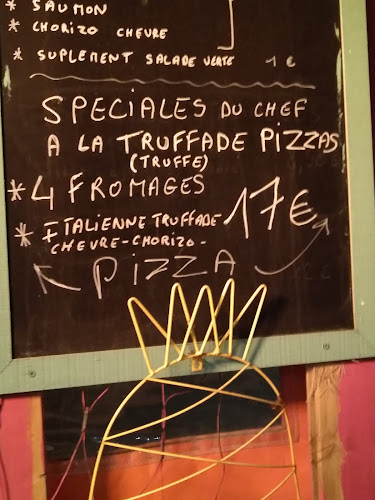 * SAUMON
* CHORIZO CHEVRE
* SUPLEMENT SALADE VERTE 1 €
SPECIALES DU CHEF
A LA TRUFFADE PIZZAS
(TRUFFE)
* 4 FROMAGES
* ITALIENNE TRUFFADE 17€
CHEVRE-CHORIZO-
PIZZA